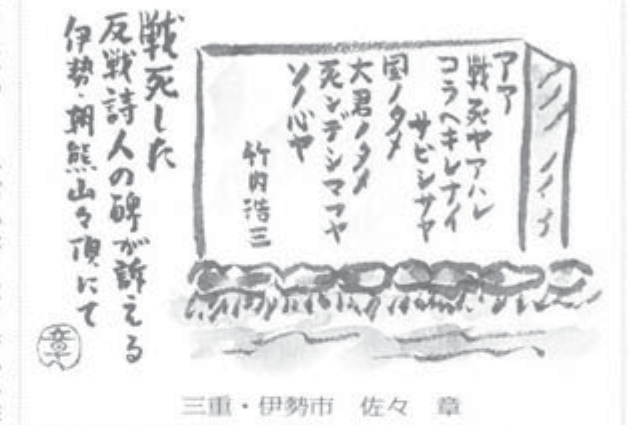 アア
戦死ヤアハレ
コラヘキレナイ
サビシサヤ
国ノタメ
大君ノタメ
死ンデシマフヤ
ソノ心ヤ
竹内浩三
戦死した
反戦詩人の碑が訴える
伊勢・朝熊山々頂にて
章
三重・伊勢市 佐々 章